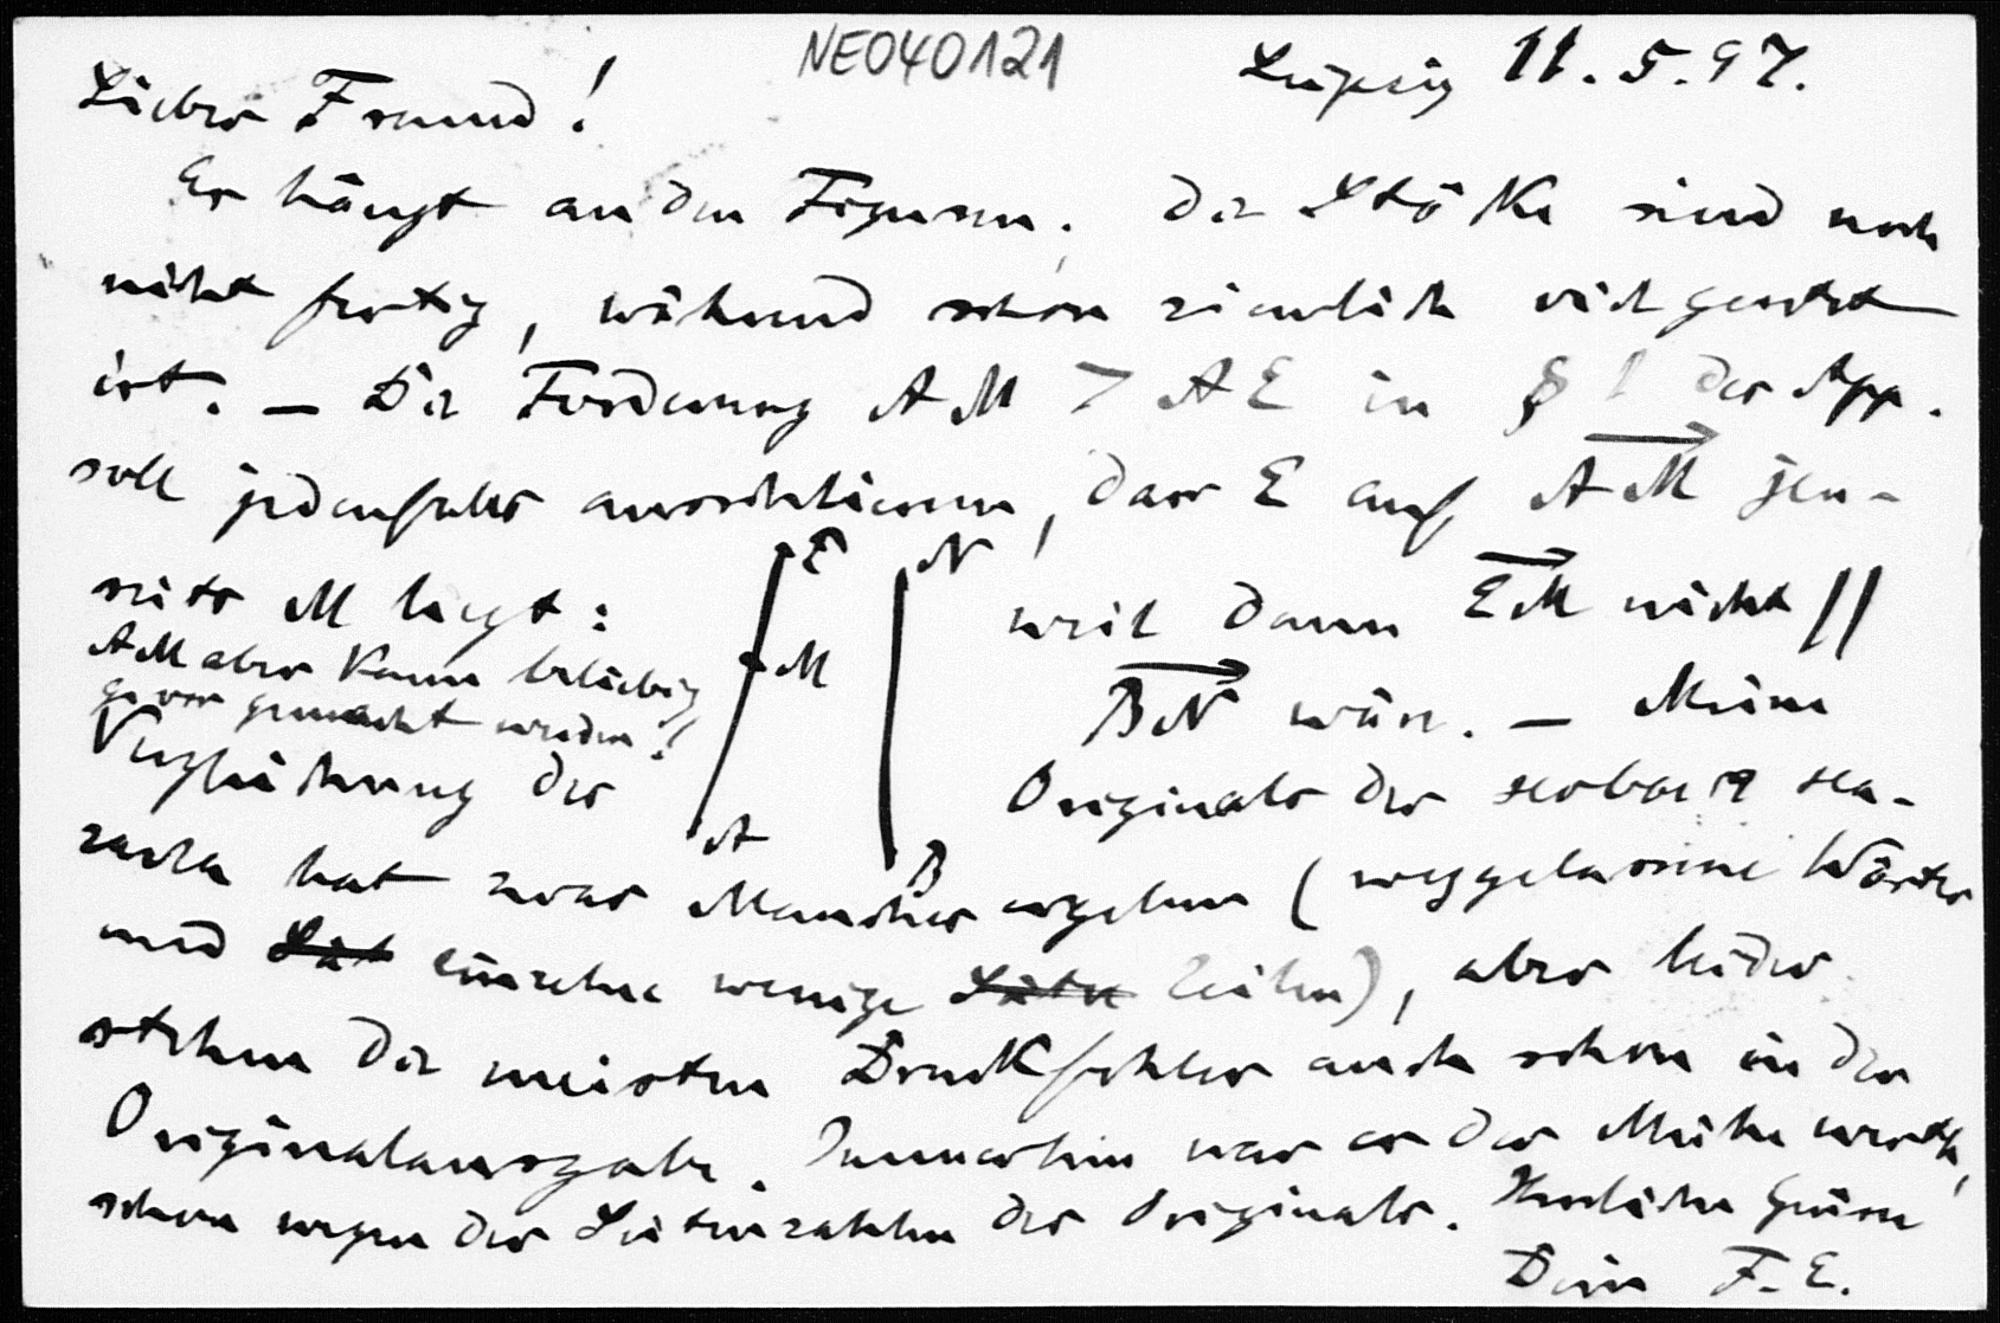 NEO40121
Leipzig 11.5.97.
Lieber Freund!
Es hängt an den Figuren. Die Stöcke sind noch
nicht fertig, während schon ziemlich viel gesetzt
ist. — Die Forderung AM > AE in § 1 der App.
soll jedenfalls ausschliessen, dass E auf AM jen-
seits M liegt:
AM aber kann beliebig
gross gemacht werden!
E
N
M
A
B
weil dann EM nicht //
BN wäre. — Meine
Vergleichung des Originals der
hat zwar Manches ergeben (weggelassene Wörter
und Sät einzelne wenige Zeilen), aber leider
stehen die meisten Druckfehler auch schon in der
Originalausgabe. Immerhin war es der Mühe werth,
schon wegen der Seitenzahlen des Originals. Herzliche Grüsse
Dein F. E.